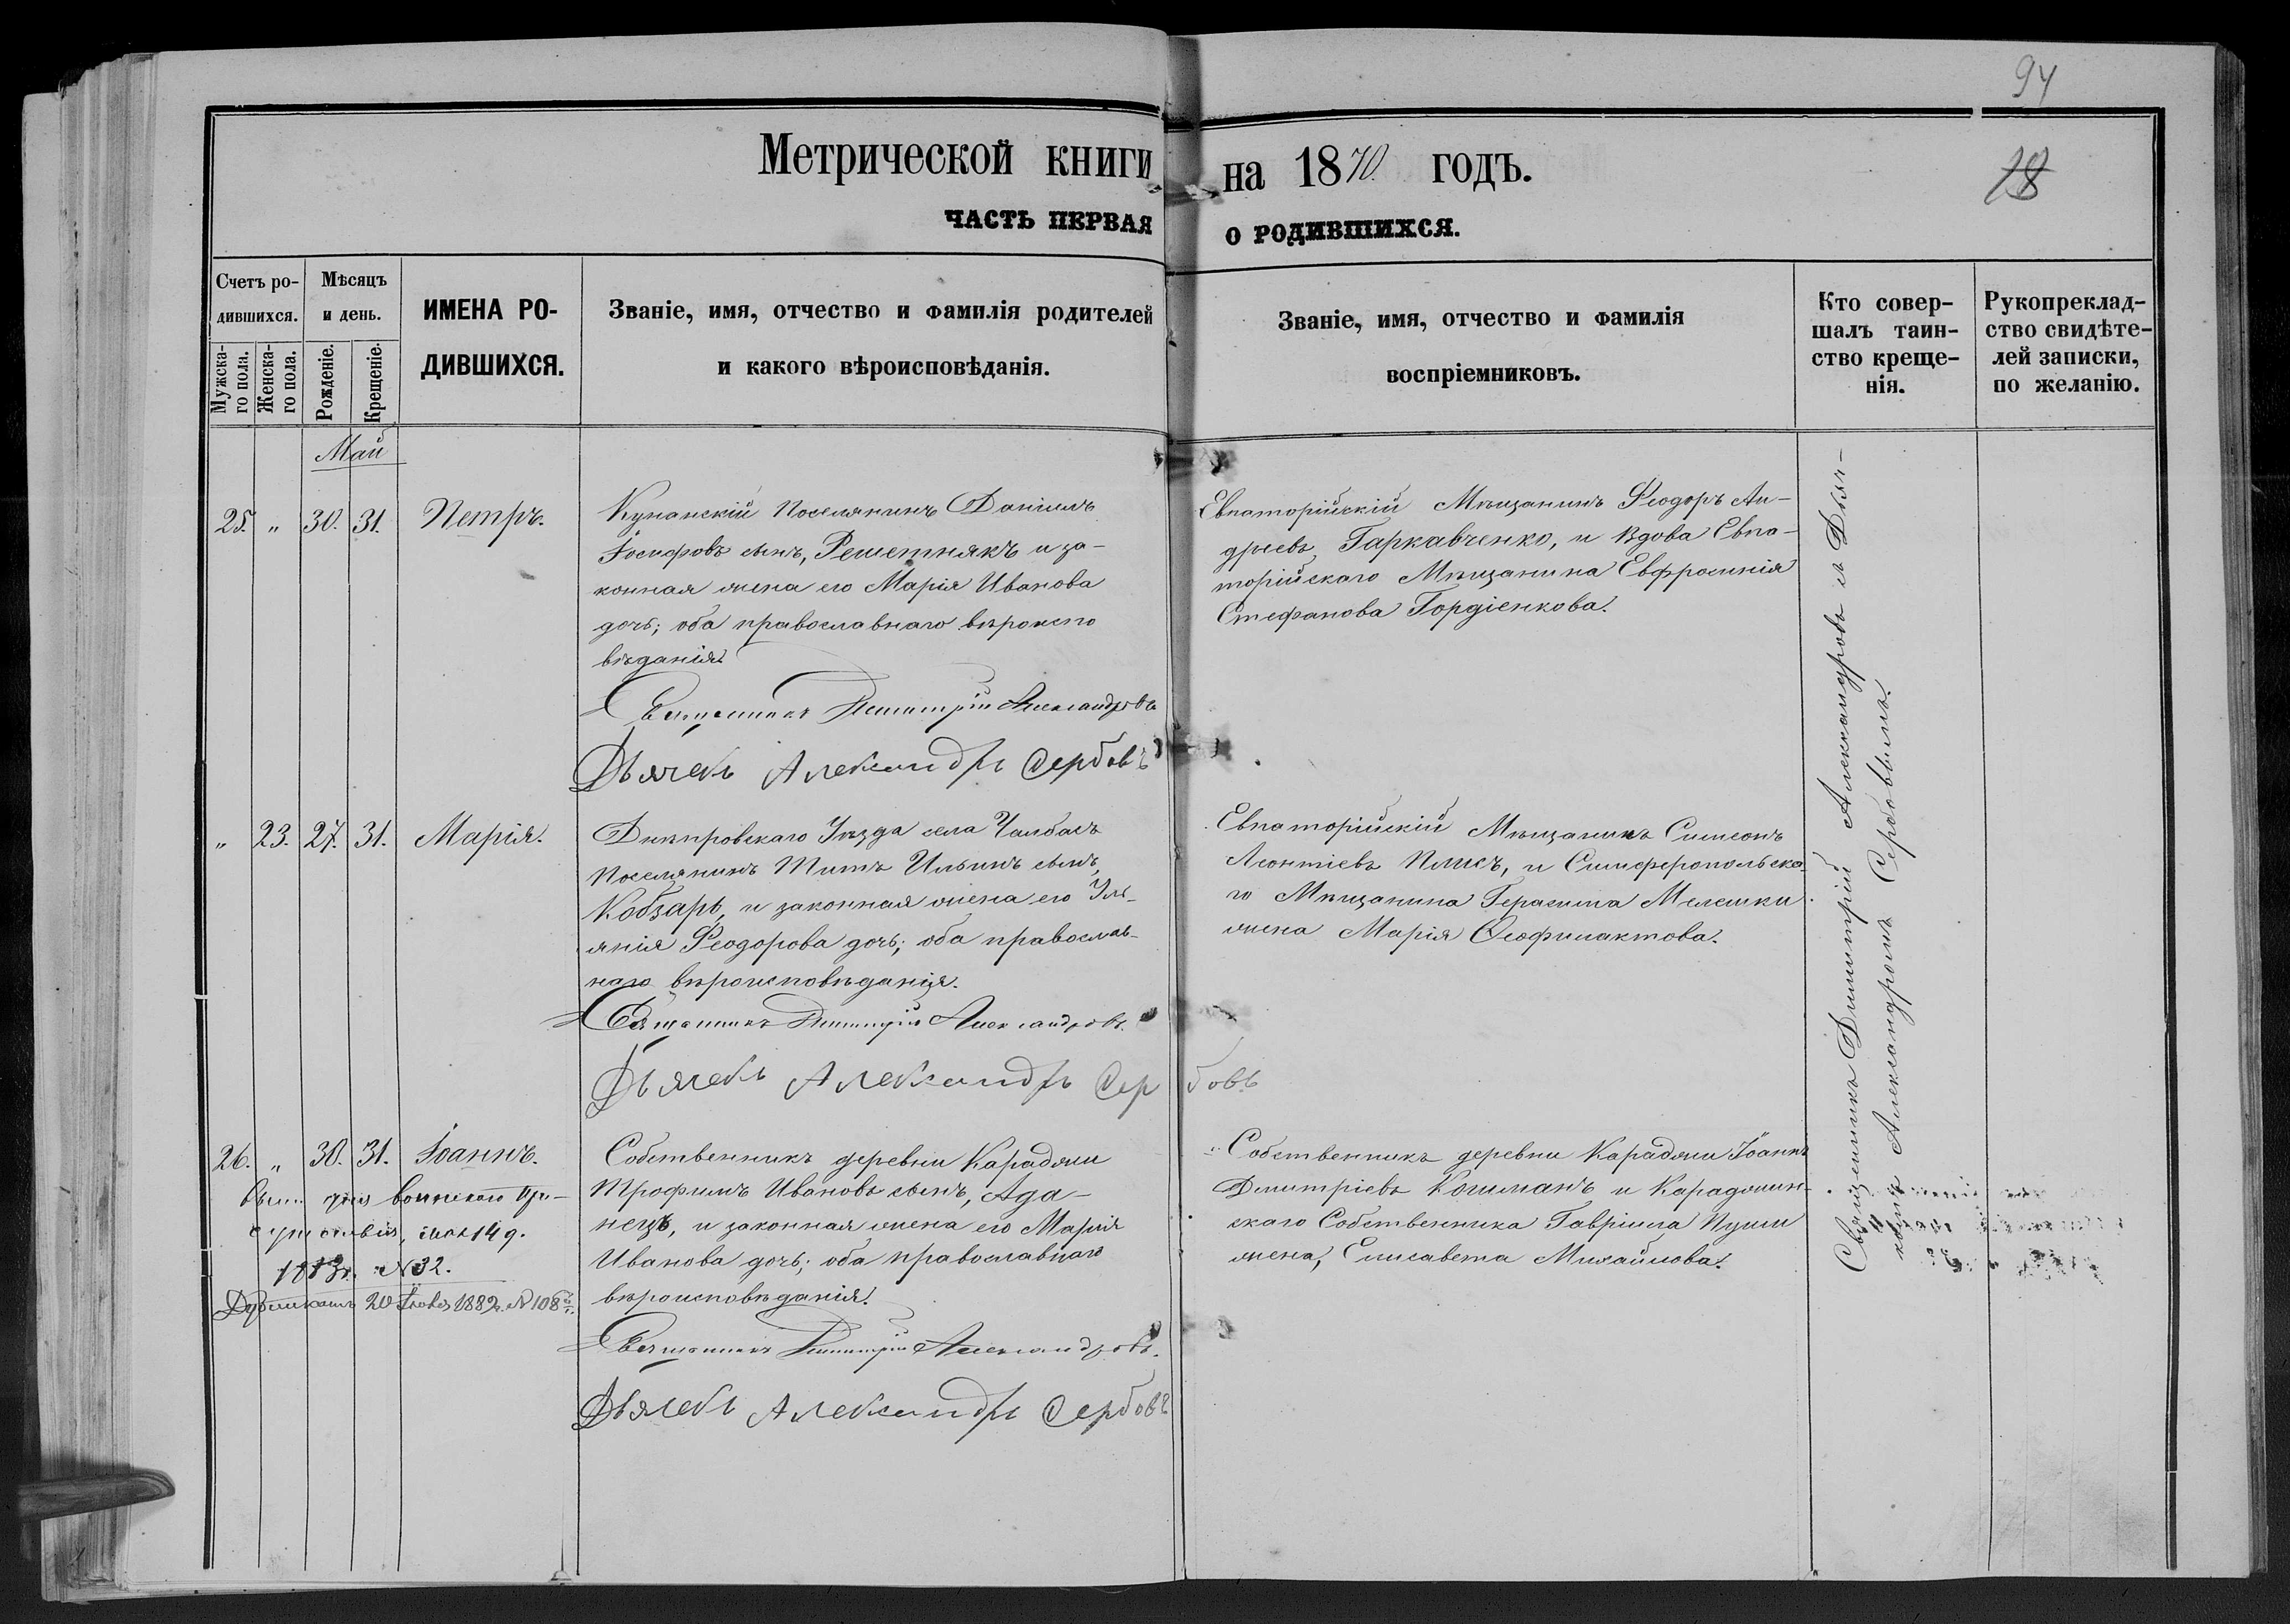 94
Метрической книги на 1870. годъ.
18
ЧАСТЬ ПЕРВАЯ О РОДИВШИХСЯ.
Счетъ ро-
дившихся.
Мужска-
го пола.
Женска-
го пола.
Мѣсяцъ
и день.
Рожденіе.
Крещеніе.
ИМЕНА РО-
ДИВШИХСЯ.
Званіе, имя, отчество и фамилія родителей
и какого вѣроисповѣданія.
Званіе, имя, отчество и фамилія
воспріемниковъ.
Кто совер-
шалъ таин-
ство креще-
нія.
Рукопреклад-
ство свидѣте-
лей записки,
по желанію.
Май
25. „ 30. 31. Петръ.
Поселянинъ Даніилъ
Іосифовъ сынъ, Решетнякъ и за-
конная жена его Марія Иванова
дочь; оба православнаго вѣроиспо
вѣданія.
Священникъ Димитрій Александровъ
Дьячекъ Александръ Сербовъ
Евпаторійскій Мѣщанинъ Ѳеодоръ Ан-
дреевъ Гаркавченко, и вдова Евпа-
торійскаго Мѣщанина Евфросинія
Стефанова Гордіенкова.
„ 23. 27. 31. Марія.
Днѣпровскаго Уѣзда села Чалбасъ
Поселянинъ Титъ Ильинъ сынъ,
Кобзарь, и законная жена его Уль-
янія Ѳеодорова дочь; оба православ-
наго вѣроисповѣданія.
Священникъ Димитрій Александровъ.
Дьячекъ Александръ Сербовъ
Евпаторійскій Мѣщанинъ Симеонъ
Леонтіевъ Плисъ, и Симферопольска-
го Мѣщанина Герасима Мелешки
жена Марія Ѳеофилактова.
26. „ 30. 31. Іоаннъ.
для воинскаго при-
сутствія, 149.
N 32.
Дубликатъ 20 1889г. N 108
Собственникъ деревни Караджи
Трофимъ Ивановъ сынъ, Ада-
нецъ, и законная жена его Марія
Иванова дочь; оба православнаго
вѣроисповѣданія.
Священникъ Димитрій Александровъ.
Дьячекъ Александръ Сербовъ
Собственникъ деревни Караджи Іоаннъ
Дмитріевъ Кошманъ и Караджин-
скаго Собственника Гавріила Пуши
жена, Елисавета Михайлова.
Священникъ Димитрій Александровъ съ Дьяч-
комъ Александромъ Сербовымъ.